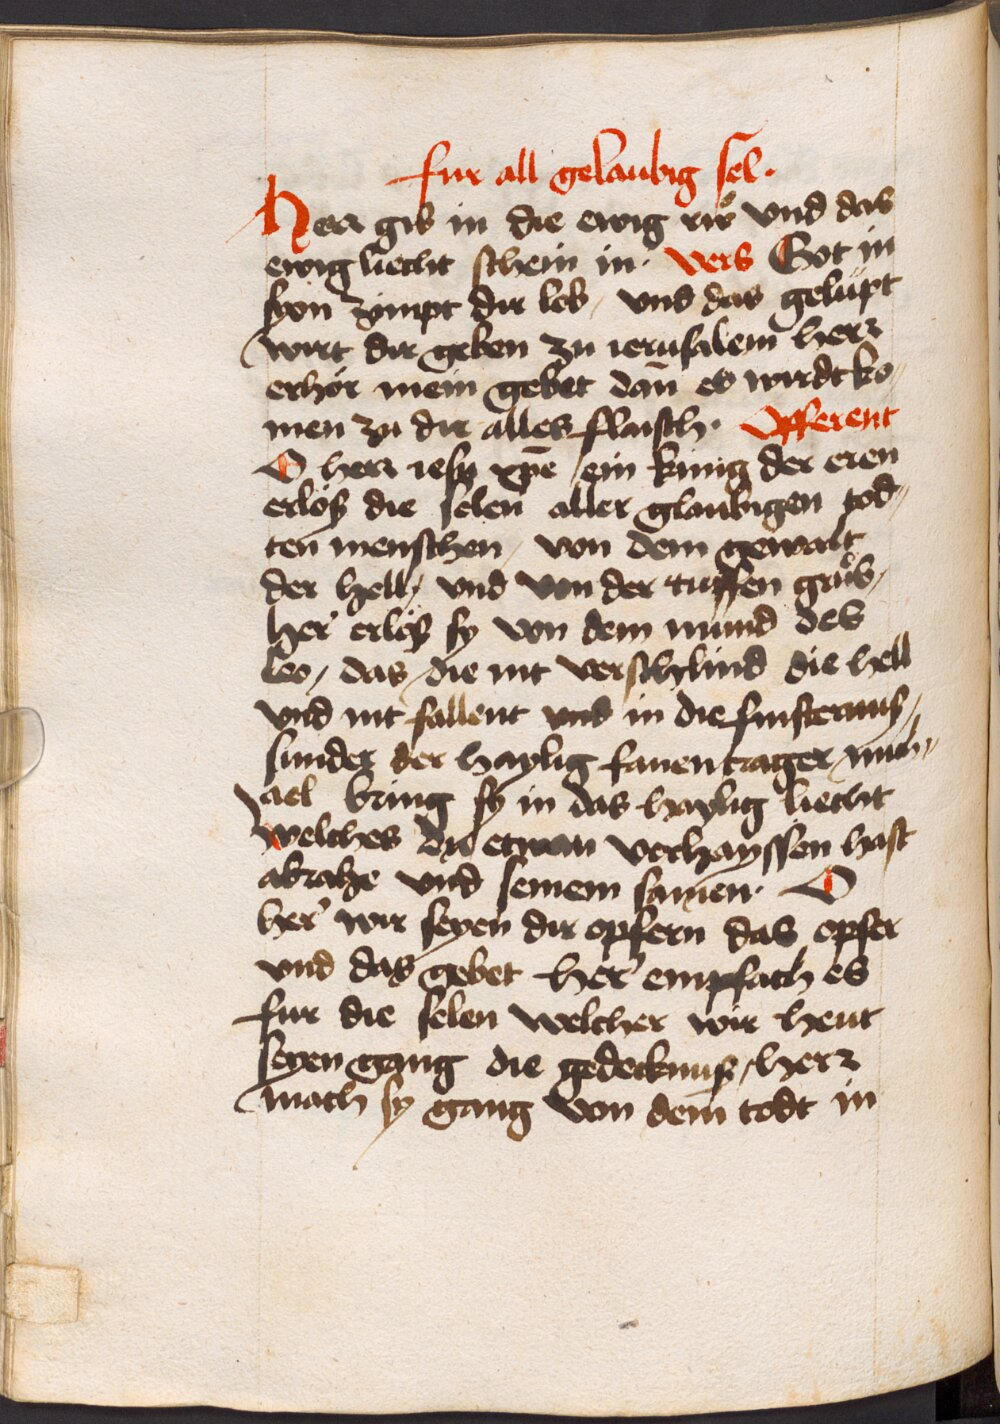 fur all gelaubig sel.
Herr gib in die ewig růw vnd das
ewig liecht schein in. vers Got in
syon zimpt dir lob / vnd das gelüpt
wirt dir geben zu ierusalem herr
erhör mein gebet dañ es wirdt ko„
men zu dir alles flaisch. Offerent
O herr iesu xp̄e ein künig der eren
erlöß die selen aller glaubigen tod„
ten menschen / von dem gewalt
der hell / vnd von der tüffen grůb /
her erlöß sy von dem mund des
leo / das die nit verschlind die hell
vnd nit fallent vnd in die finsternuß /
sunder der haylig fanentrager mich„
ael bring sy in das haylig liecht
welches du etwan verhayssen hast
abrahe vnd seinem samen. O
her wir seyen dir opfern das opfer
vnd das gebet her empfach es
fur die selen welcher wir heut
seyen gang die gedecknuß / herr
mach sy gang von dem todt in